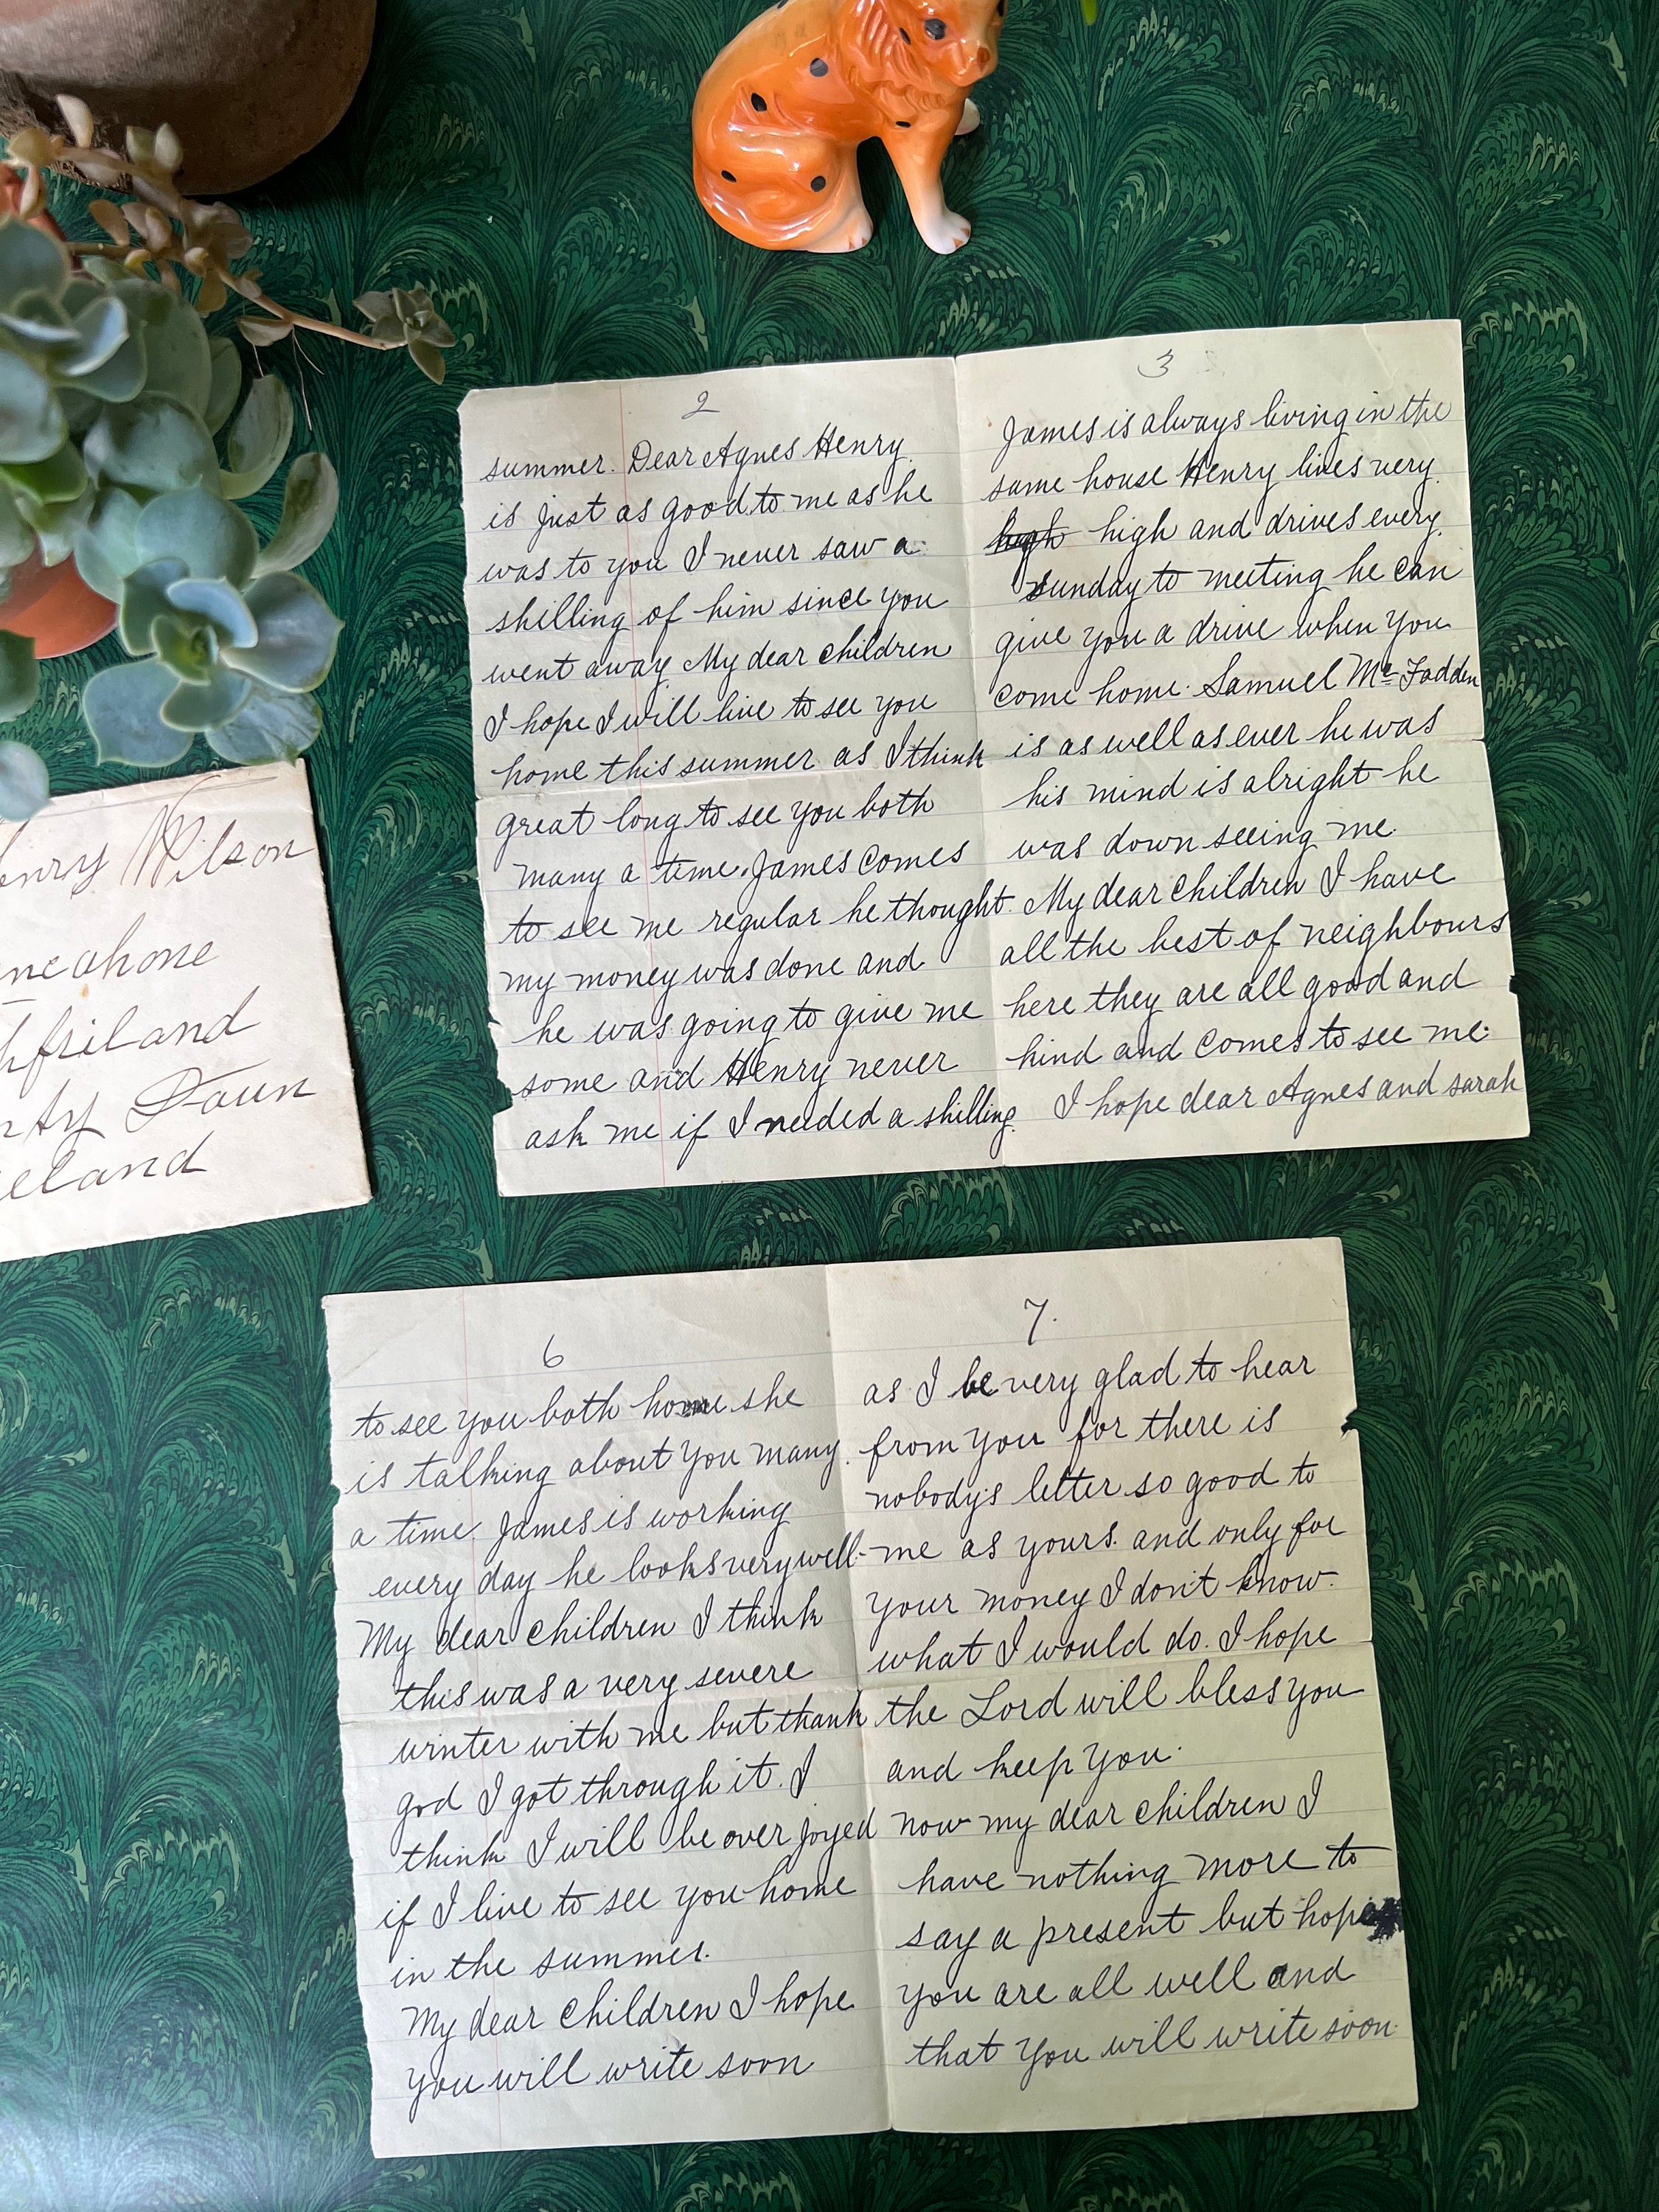 2
summer. Dear Agnes Henry
is just as good to me as he
was to you I never saw a
shilling of him since you
went away My dear children
I hope I will live to see you
home this summer as I think
great long to see you both
many a time. James comes
to see me regular he thought
my money was done and
he was going to give me
some and Henry never
ask me if I needed a shilling.
3
James is always living in the
same house Henry lives very
high high and drives every
sunday to meeting he can
give you a drive when you
come home. Samuel Mc Fadden
is as well as ever he was
his mind is alright he
was down seeing me.
My dear children I have
all the best of neighbours
here they are all good and
kind and comes to see me.
I hope dear Agnes and sarah
enry Wilson
neahone
hfriland
nty Down
eland
6
to see you both home she
is talking about you many
a time. James is working
every day he looks very well-
My dear children I think
this was a very severe
winter with me but thank
god I got through it. I
think I will be over joyed
if I live to see you home
in the summer.
My dear children I hope
you will write soon
7.
as I be very glad to hear
from you for there is
nobody's letter so good to
me as yours. and only for
your money I don't know.
what I would do. I hope
the Lord will bless you
and keep you.
now my dear children I
have nothing more to
say a present but hope
you are all well and
that you will write soon.